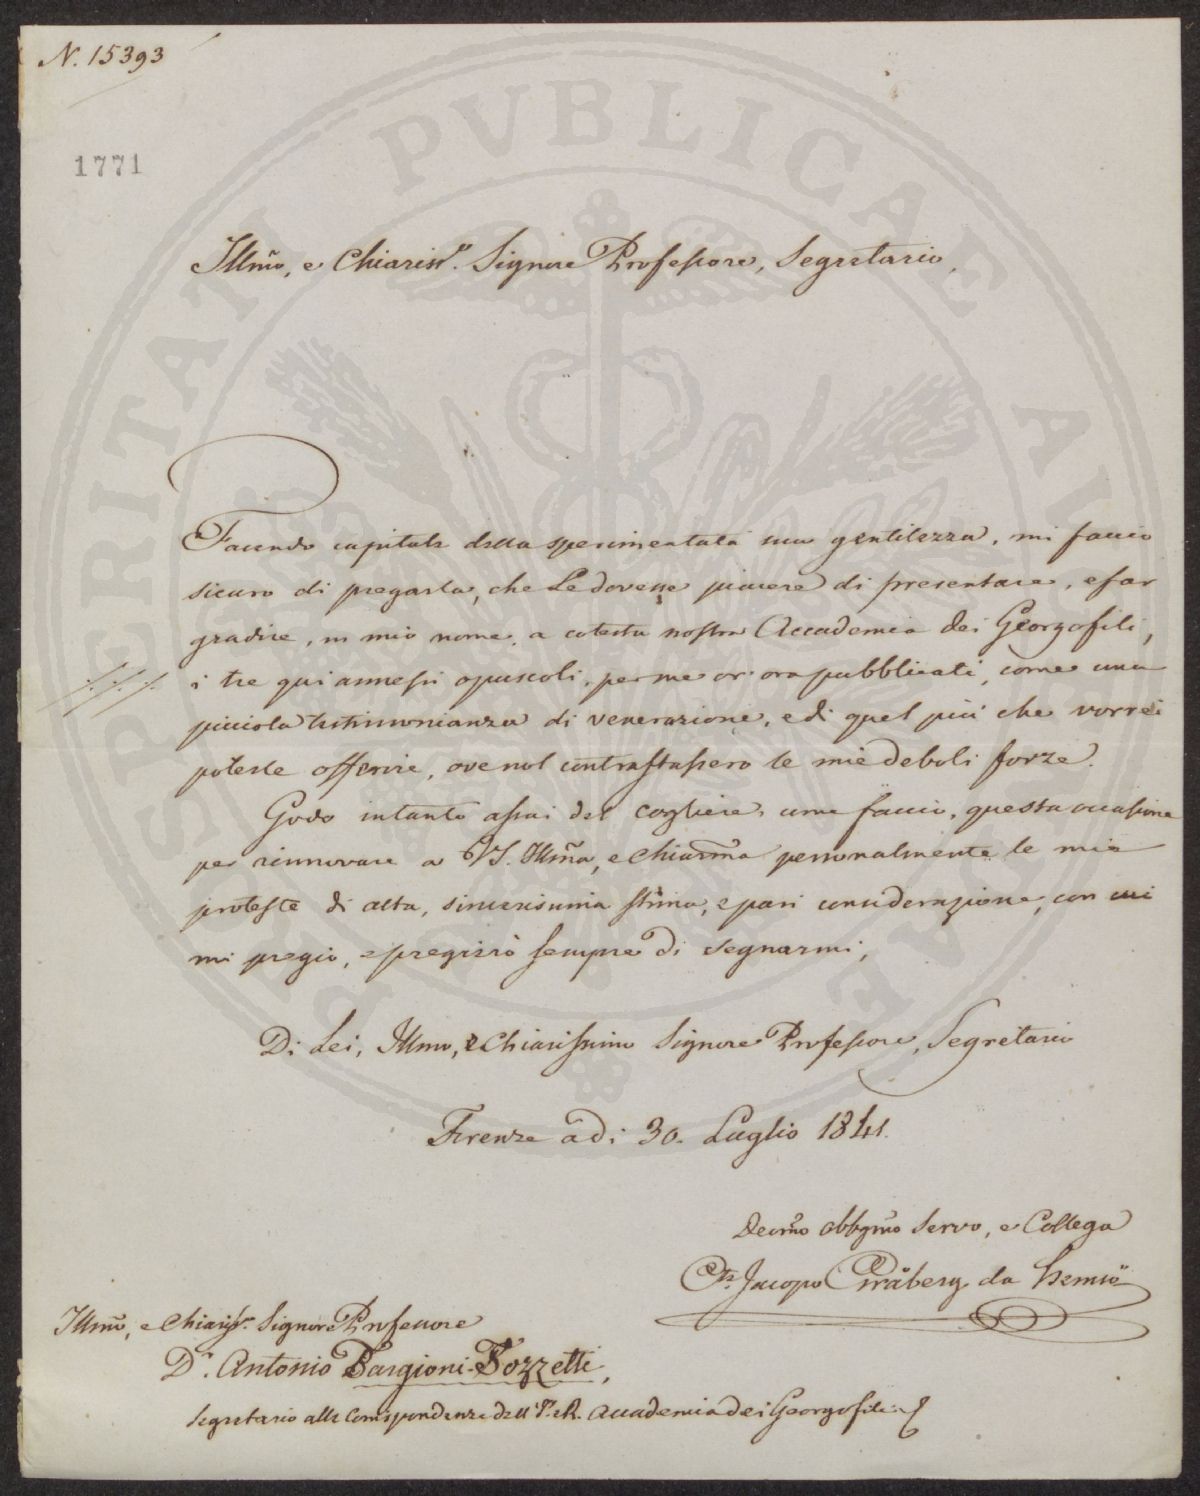 N. 15393
1771
PROSPERITATI PUBLICAE AUGENDAE
Illm̃o, e Chiariss.º Signore Professore, Segretario,
Facendo capitale della sperimentata sua gentilezza, mi faccio
sicuro di pregarla, che Le dovesse piacere di presentare, e far
gradire, in mio nome, a cotesta nostra Accademia dei Georgofili,
i tre qui annessi opuscoli, per me or' ora pubblicati, come una
picciola testimonianza di venerazione, e di quel più che vorrei
poterle offerire, ove nol contrastassero le mie deboli forze.
Godo intanto assai del cogliere, come faccio, questa occasione
per rinnovare a VS. Illm̃a, e Chiarm̃a personalmente le mie
proteste di alta, sincerissima stima, e pari considerazione, con cui
mi pregio, e pregierò sempre di segnarmi,
Di Lei, Illmo, e Chiarissimo Signore Professore, Segretario
Firenze a dì 30. Luglio 1841.
Devm̃o obbgm̃o Servo, e Collega
Cte. Jacopo Gråberg da Hemsö
Illm̃o, e Chiariss.º Signore Professore
D.r Antonio Targioni-Tozzetti,
Segretario alle Corrispondenze dell' I. e R. Accademia dei Georgofili